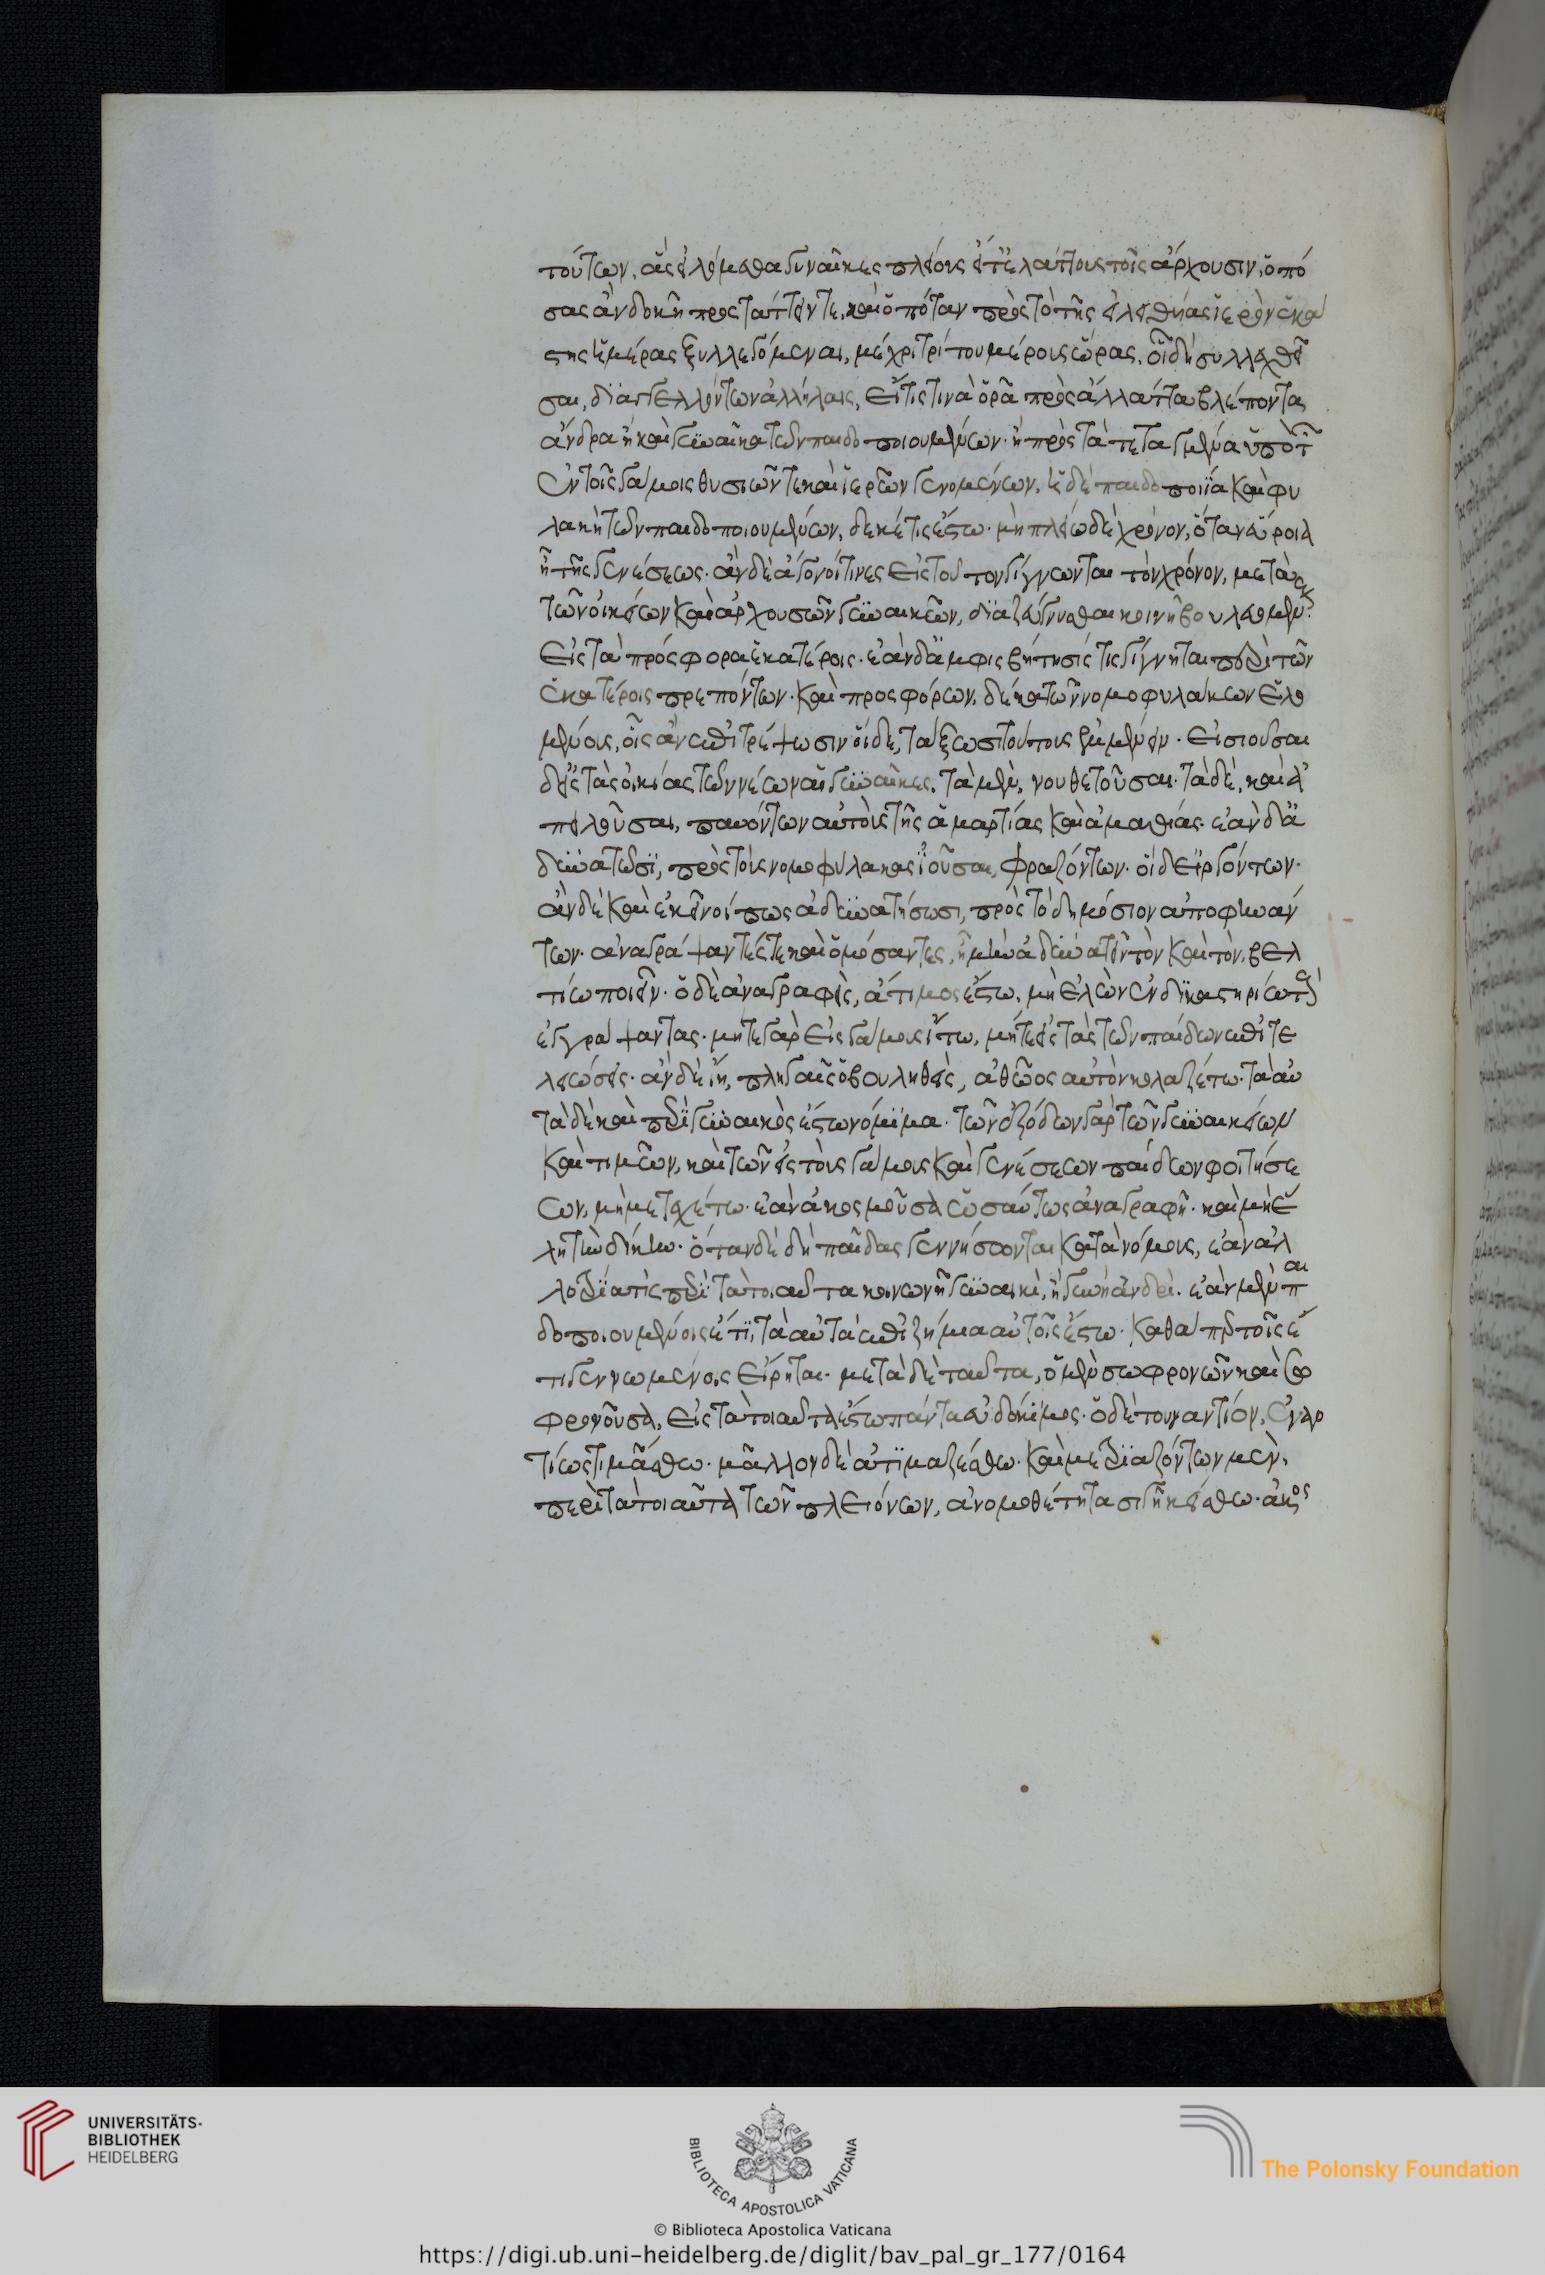 τούτων, ἃς εἱλόμεσθα γυναῖκες πλείους εἴτ' ἐλάττους τοῖς ἄρχουσιν, ὁπό
σας ἂν δοκῆ προστάττειν τε, καὶ ὁπόταν πρὸς τὸ τῆς εἰλειθυίας ἱερὸν ἑκά
στης ἡμέρας ξυλλεγόμεναι, μέχρι τρίτου μέρους ὥρας. οἷ δὴ συλλεχθεῖ
σαι, διαγγελλόντων ἀλλήλαις, εἴ τίς τινα ὁρᾶ πρὸς ἄλλ' ἄττα βλέποντα
ἄνδρα ἢ καὶ γυναῖκα τῶν παιδοποιουμένων. ἢ πρὸς τὰ τεταγμένα ὑπὸ τῶν
ἐν τοῖς γάμοις θυσιῶν τε καὶ ἱερῶν γενομένων. ἡ δὲ παιδοποιΐα καὶ φυ
λακὴ τῶν παιδοποιουμένων, δεκέτις ἔστω. μὴ πλείω δὲ χρόνον, ὅταν εὔροια
ᾖ τῆς γενέσεως. ἂν δὲ ἄγονοί τινες εἰς τοῦτον γίγνωνται τὸν χρόνον, μετὰ
τῶν οἰκείων καὶ ἀρχουσῶν γυναικῶν, διαζεύγνυσθαι κοινῆ βουλευομένους
εἰς τὰ πρόσφορα ἑκατέροις. ἐὰν δ' ἀμφισβήτησίς τις γίγνηται περὶ τῶν
ἑκατέροις πρεπόντων. καὶ προσφόρων, δέκα τῶν νομοφυλάκων ἑλο
μένους, οἷς ἂν ἐπιτρέψωσιν οἵδε, τάξωσι τούτοις ἐμμένειν. εἰσιοῦσαι
δ' εἰς τὰς οἰκίας τῶν νέων αἱ γυναῖκες, τὰ μὲν, νουθετοῦσαι. τὰ δὲ, καὶ ἀ
πειλοῦσαι, παυόντων αὐτοὺς τῆς ἁμαρτίας καὶ ἀμαθίας. ἐὰν δ' ἀ
δυνατῶσι, πρὸς τοὺς νομοφύλακας ἰοῦσαι, φραζόντων. οἱ δ' εἰργόντων.
ἂν δὲ καὶ ἐκεῖνοί πως ἀδυνατήσωσι, πρὸς τὸ δημόσιον ἀποφηνάν
των. ἀναγράψαντές τε καὶ ὀμόσαντες, ἦ μὴν ἀδυνατεῖν τὸν καὶ τὸν, βελ
τίω ποιεῖν. ὁ δὲ ἀναγραφεὶς, ἄτιμος ἔστω, μὴ ἑλὼν ἐν δικαστηρίω τοὺς
ἐγγράψαντας. μήτε γὰρ εἰς γάμους ἴτω, μήτε εἰς τὰς τῶν παίδων ἐπιτε
λειώσεις. ἂν δὲ ἴη, πληγαῖς ὁ βουληθεὶς, ἀθῶος αὐτὸν κολαζέτω. τὰ αὐ
τὰ δὲ καὶ περὶ γυναικὸς ἔστω νόμιμα. τῶν ἐξόδων γὰρ τῶν γυναικείων
καὶ τιμῶν, καὶ τῶν εἰς τοὺς γάμους καὶ γενέσεων παίδων φοιτήσε
ων, μὴ μετεχέτω. ἐὰν ἀκοσμοῦσα ὡσαύτως ἀναγραφῆ. καὶ μὴ ἕ
λη τὴν δίκην. ὅταν δὲ δὴ παῖδας γεννήσωνται κατὰ νόμους, ἐὰν ἀλ
λοτρία τις περὶ τὰ τοιαῦτα κοινωνῆ γυναικὶ, ἢ γυνὴ ἀνδρί. ἐὰν μὲν παι
δοποιουμένοις ἔτι, τὰ αὐτὰ ἐπιζήμια αὐτοῖς ἔστω. καθάπερ τοῖς ἔ
τι γεννωμένοις εἴρηται. μετὰ δὲ ταῦτα, ὁ μὲν σωφρονῶν καὶ σω
φρονοῦσα, εἰς τὰ τοιαῦτα ἔστω πάντα εὐδόκιμος. ὁ δὲ τοὐναντίον, ἐναν
τίως τιμάσθω. μᾶλλον δὲ ἀτιμαζέσθω. καὶ μετριαζόντων μὲν,
περὶ τὰ τοιαῦτα τῶν πλειόνων, ἀνομοθέτητα σιγῆ κείσθω. ἀκος
UNIVERSITÄTS-
BIBLIOTHEK
HEIDELBERG
BIBLIOTECA APOSTOLICA VATICANA
© Biblioteca Apostolica Vaticana
The Polonsky Foundation
https://digi.ub.uni-heidelberg.de/diglit/bav_pal_gr_177/0164